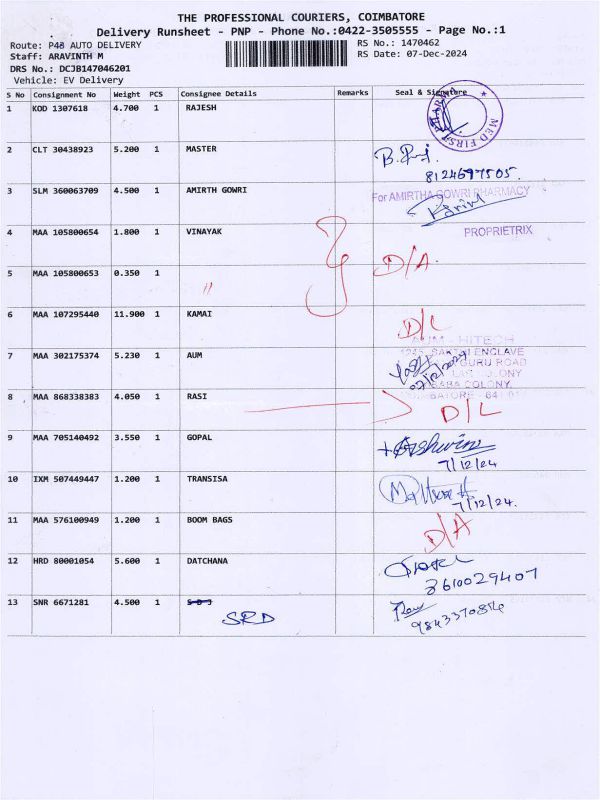 THE PROFESSIONAL COURIERS, COIMBATORE
Delivery Runsheet - PNP - Phone No.:0422-3505555 - Page No.:1
Route: P48 AUTO DELIVERY
Staff: ARAVINTH M
DRS No.: DCJB147046201
Vehicle: EV Delivery
RS No.: 1470462
RS Date: 07-Dec-2024
S No Consignment No Weight PCS Consignee Details Remarks Seal & Signature
1 KOD 1307618 4.700 1 RAJESH
MED FIRST PHARM
2 CLT 30438923 5.200 1 MASTER
8124697505.
3 SLM 360063709 4.500 1 AMIRTH GOWRI
For AMIRTHA GOWRI PHARMACY
PROPRIETRIX
4 MAA 105800654 1.800 1 VINAYAK
D/A
5 MAA 105800653 0.350 1 "
6 MAA 107295440 11.900 1 KAMAI
D/L
7 MAA 302175374 5.230 1 AUM
AUM - HITECH
ENCLAVE
GURU ROAD
COLONY
SABA COLONY,
07/12/2024
8 MAA 868338383 4.050 1 RASI
D/L
9 MAA 705140492 3.550 1 GOPAL
Ashwin
7/12/24
10 IXM 507449447 1.200 1 TRANSISA
7/12/24.
11 MAA 576100949 1.200 1 BOOM BAGS
D/A
12 HRD 80001054 5.600 1 DATCHANA
8610029407
13 SNR 6671281 4.500 1 S D J
SRD